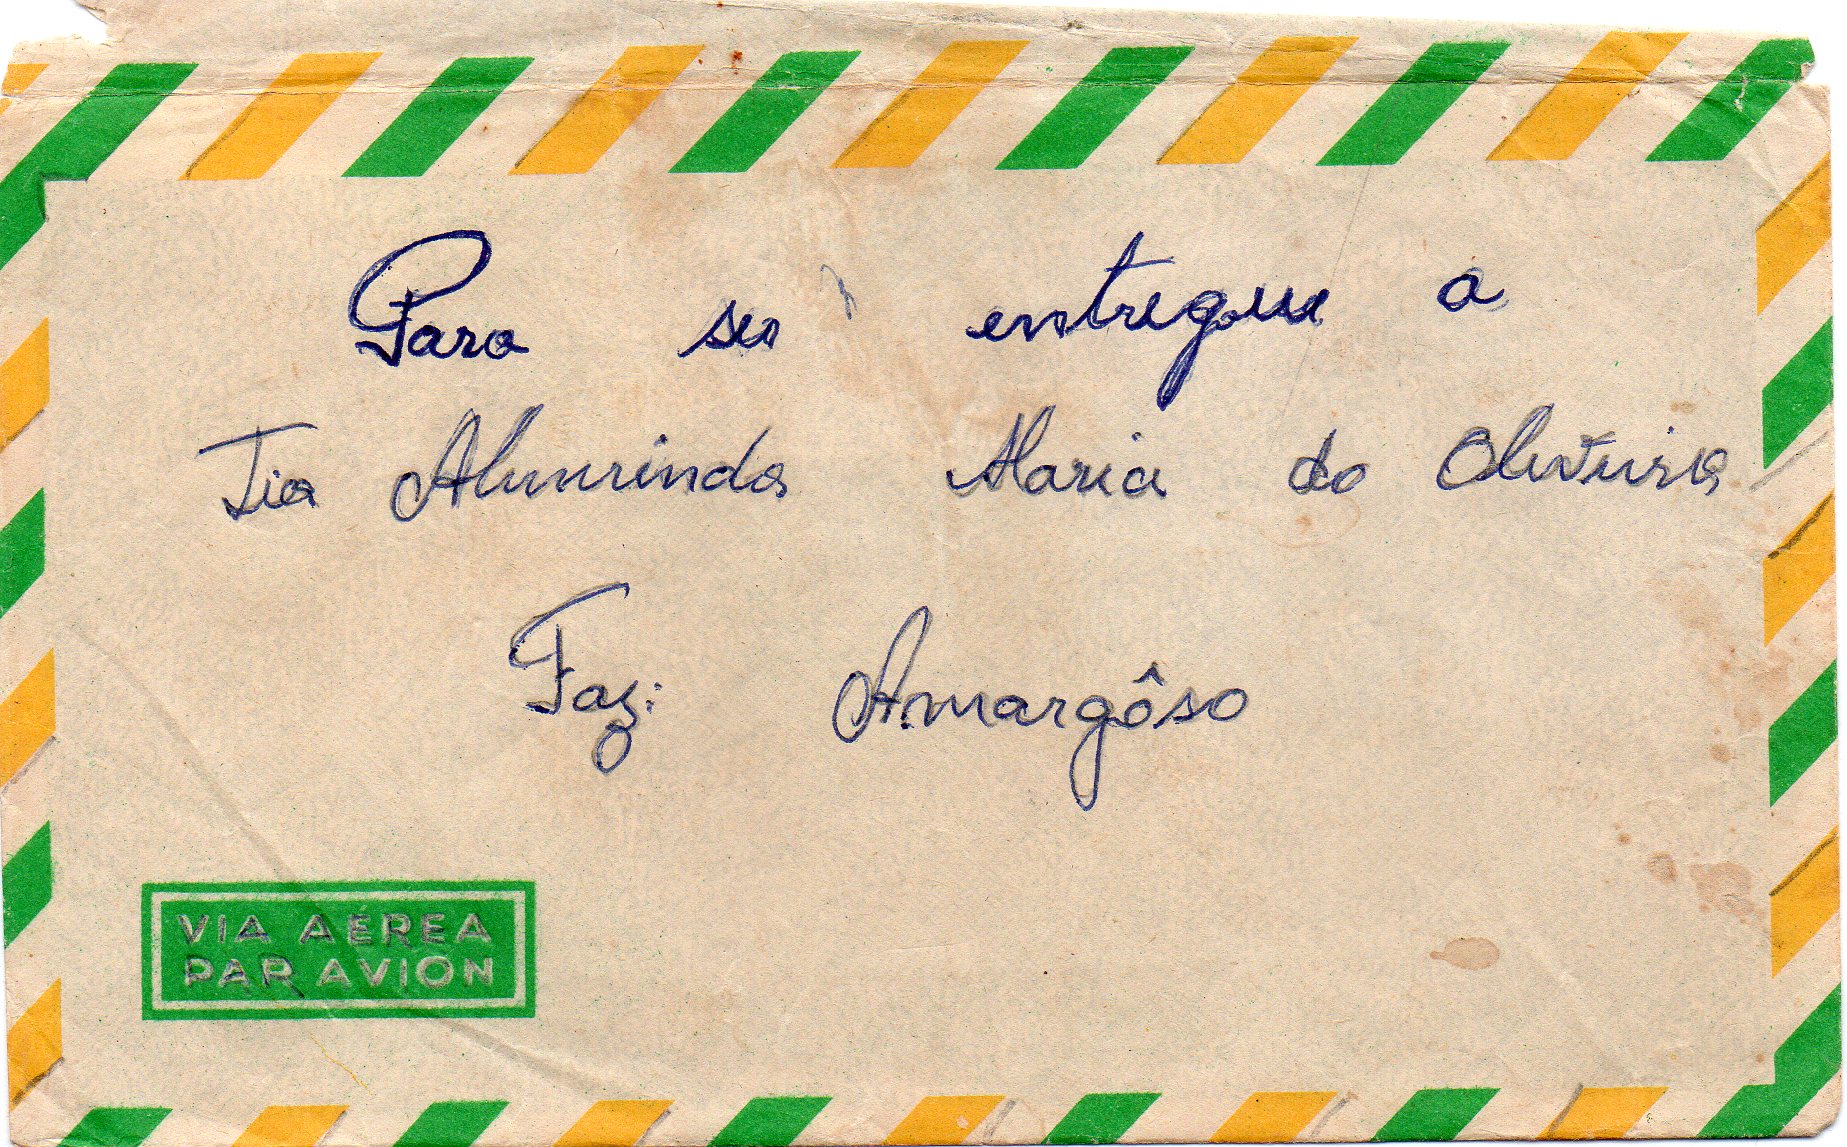 Para ser entregue a
Tia Almerinda Maria do Oliveira
Faz: Amargôso
VIA AÉREA
PAR AVION